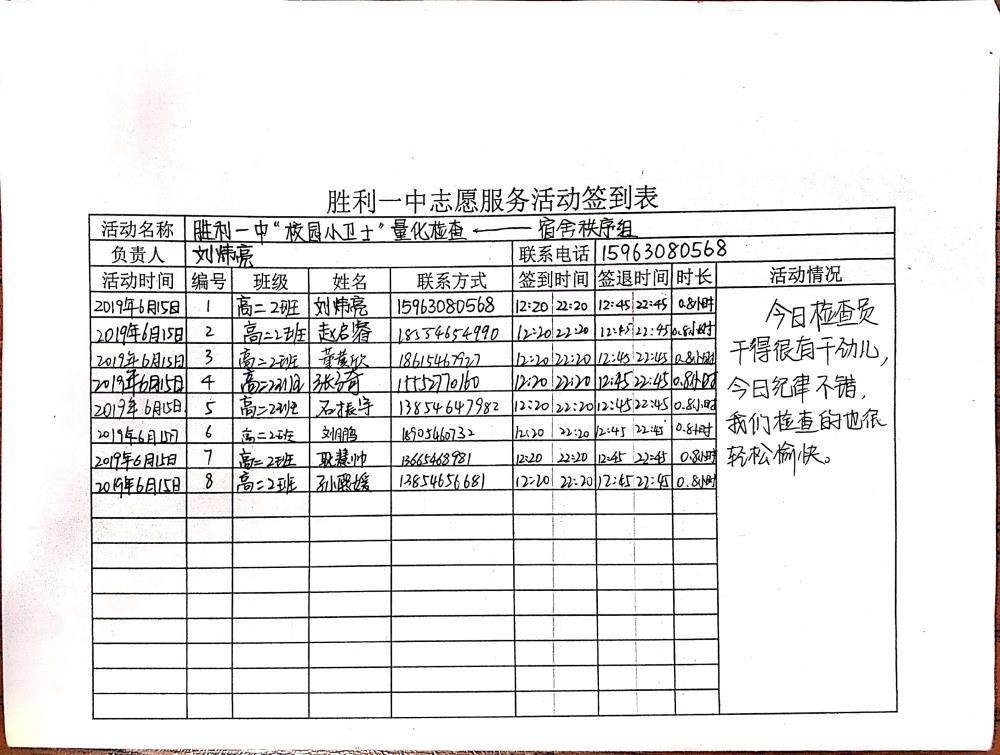 胜利一中志愿服务活动签到表
活动名称 胜利一中“校园小卫士”量化检查 ←—— 宿舍秩序组
负责人 刘炜亮 联系电话 15963080568
活动时间 编号 班级 姓名 联系方式 签到时间 签退时间 时长 活动情况
2019年6月15日 1 高二2班 刘炜亮 15963080568 12:20 22:20 12:45 22:45 0.8小时
2019年6月15日 2 高二2班 赵启睿 18554654990 12:20 22:20 12:45 22:45 0.8小时
2019年6月15日 3 高二2班 18615467927 12:20 22:20 12:45 22:45 0.8小时
2019年6月15日 4 高二2班 12:20 22:20 12:45 22:45 0.8小时
2019年6月15日 5 高二2班 石振宇 13854647982 12:20 22:20 12:45 22:45 0.8小时
2019年6月15日 6 高二2班 刘鹏 18905460732 12:20 22:20 12:45 22:45 0.8小时
2019年6月15日 7 高二2班 耿慧帅 13665468981 12:20 22:20 12:45 22:45 0.8小时
2019年6月15日 8 高二2班 13854656681 12:20 22:20 12:45 22:45 0.8小时
今日检查员
干得很有干劲儿,
今日纪律不错,
我们检查的也很
轻松愉快。